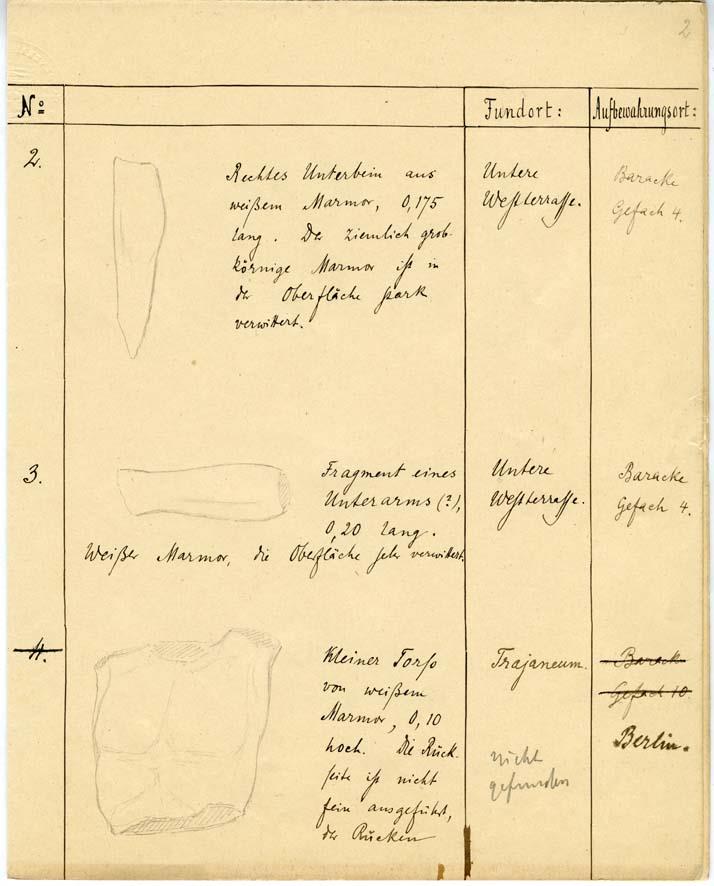 2
No Fundort: Aufbewahrungsort:
2.
Rechtes Unterbein aus
weißem Marmor, 0,175
lang. Der ziemlich grob-
körnige Marmor ist in
der Oberfläche stark
verwittert.
Untere
Westterrasse.
Baracke
Gefach 4.
3.
Fragment eines
Unterarms (?),
0,20 lang.
Weißer Marmor, die Oberfläche sehr verwittert.
Untere
Westterrasse.
Baracke
Gefach 4.
4.
Kleiner Torso
von weißem
Marmor, 0,10
hoch. Die Rück-
seite ist nicht
fein ausgeführt,
der Rücken
Trajaneum.
nicht
gefunden
Barack
Gefach 10.
Berlin.